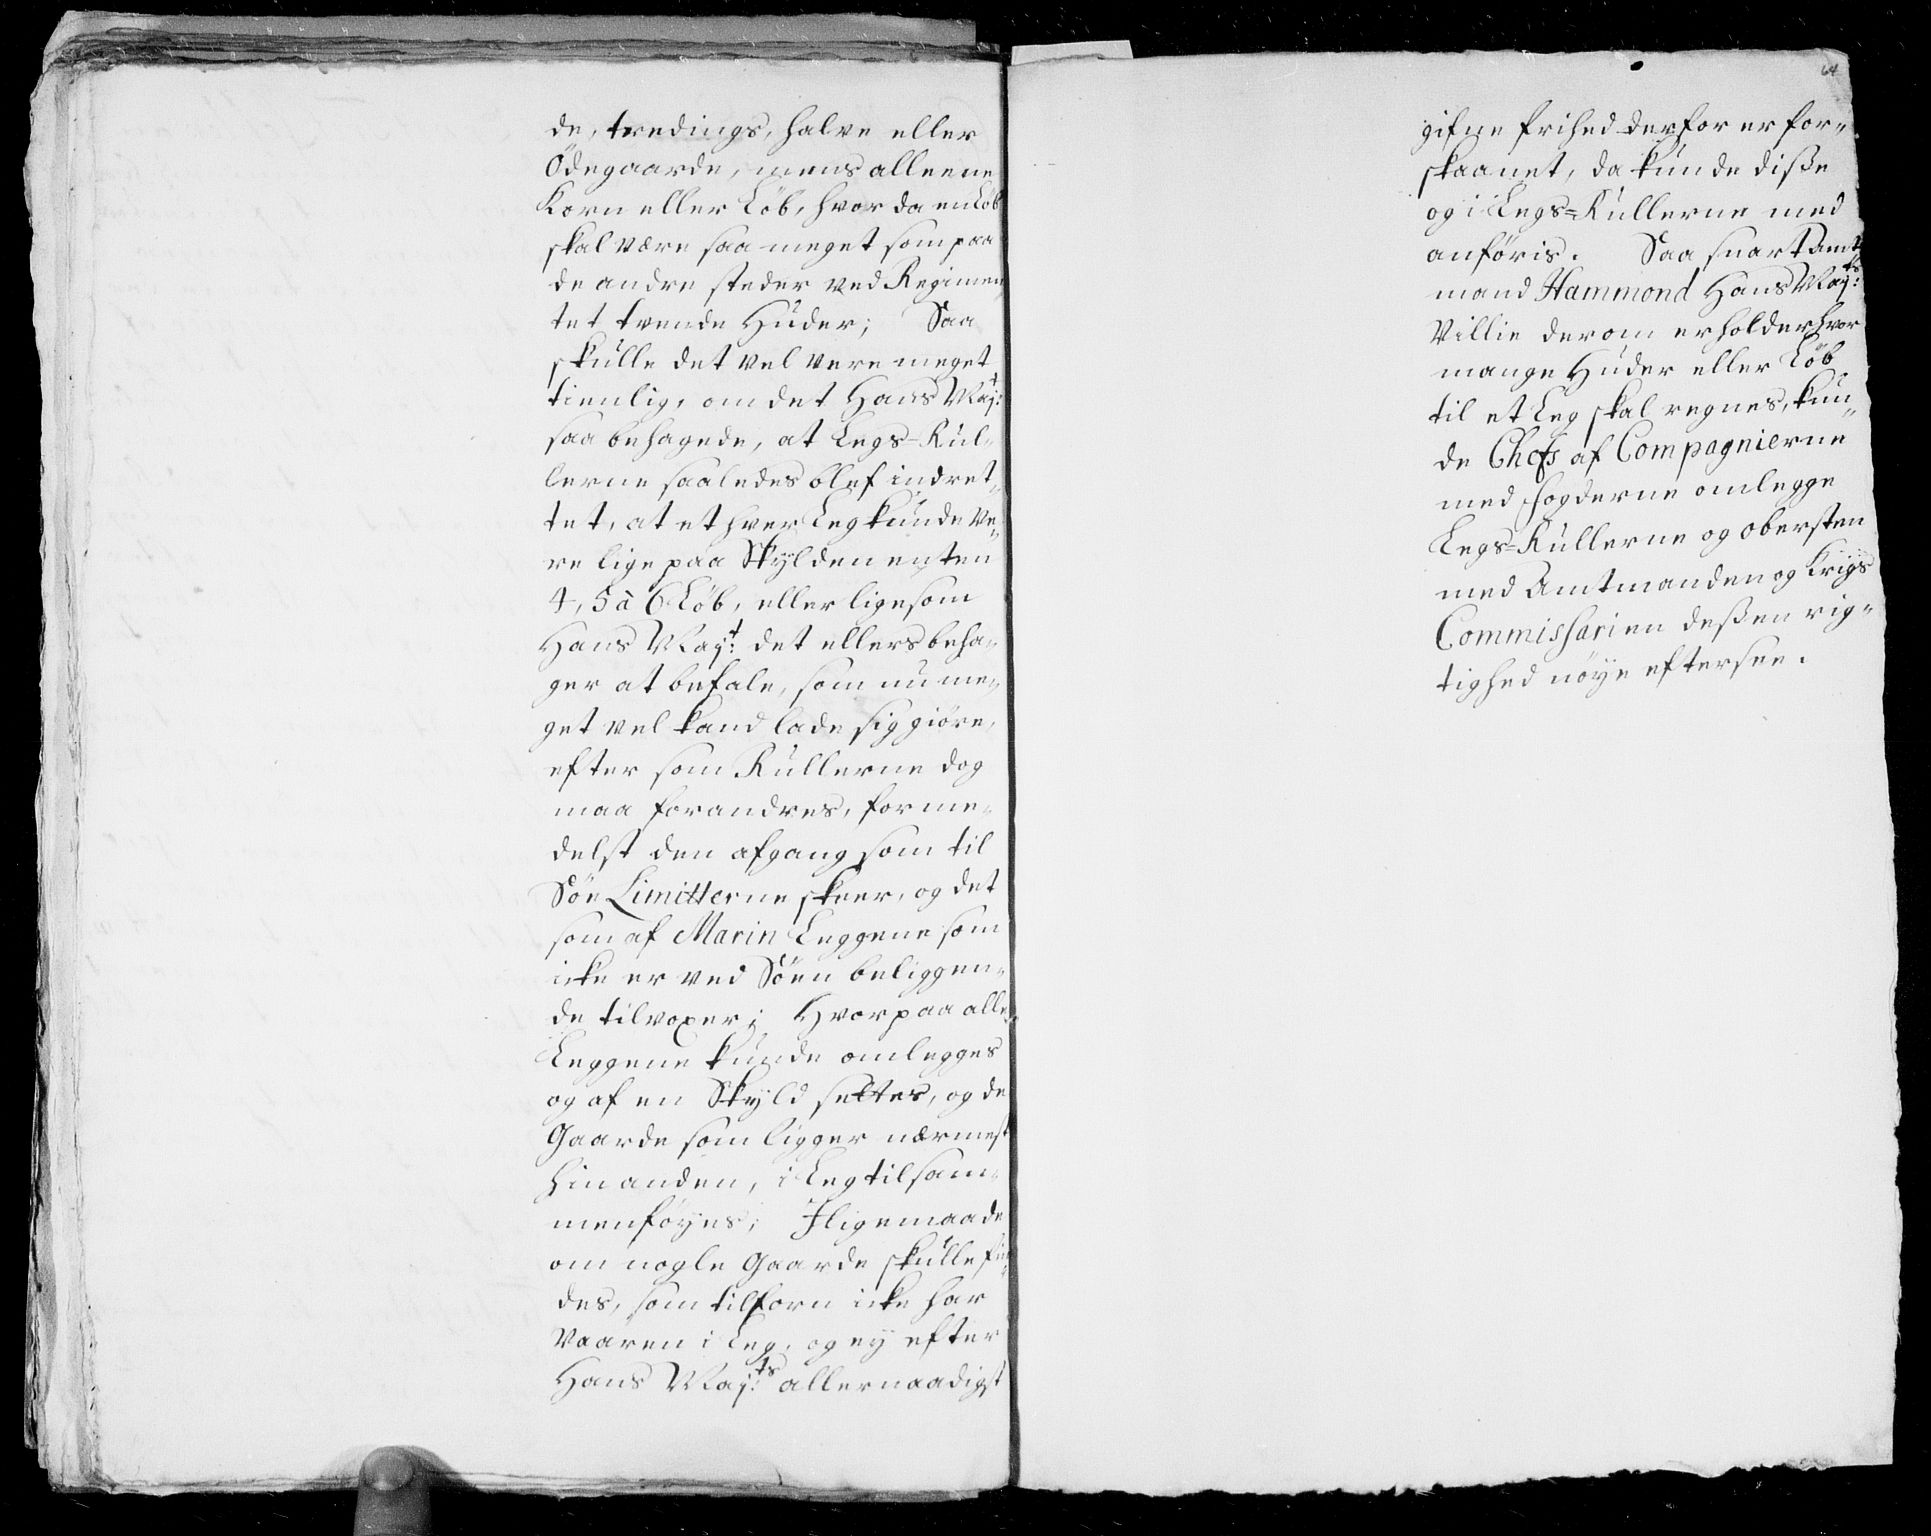 de, tredings, halve eller
Ödegaarde, mens alleene
Korn eller Löb, hvor da en Löb
skal være saa meget som paa
de andre steder ved Regimen
tet tvende Huder; Saa
skulle det vel vere meget
tienlig, om det Hans May:t
saa behagede, at Legs-Rul-
lerne saaledes blef indret-
tet, at et hver Leg kunde ve-
re lige paa Skylden enten
4, 5 à 6 Löb, eller ligesom
Hans May:t det ellers beha-
ger at befale, som nu me-
get vel kand lade sig giöre,
efter som Rullerne dog
maa forandres, forme-
delst den afgang som til
Söe Limitterne skeer, og det
som af Marin Leggene som
icke er ved Söen beliggen-
de tilvoxer; Hvorpaa alle
Leggene kunde omlegges
og af en Skyld settes, og de
Gaarde som ligger nærmest
hinanden, i Leg tilsam-
menföyes; Iligemaade
om nogle Gaarde skulle fin-
des, som tilforn icke har
Vaaren i Leg, og ey efter
Hans May:ts allernaadigst
64
gifne frihed derfor er for-
skaanet, da kunde diße
og i Legs-Rullerne med
anföris. Saa snart Amt
mand Hammond Hans May:ts
Villie derom erholder hvor
mange Huder eller Löb
til et Leg skal regnes, kun-
de Chefs af Compagnierne
med Fogderne omlegge
Legs-Rullerne og Obersten
med Amtmanden og Krigs
Commissarien deßen rig-
tighed nöye eftersee.